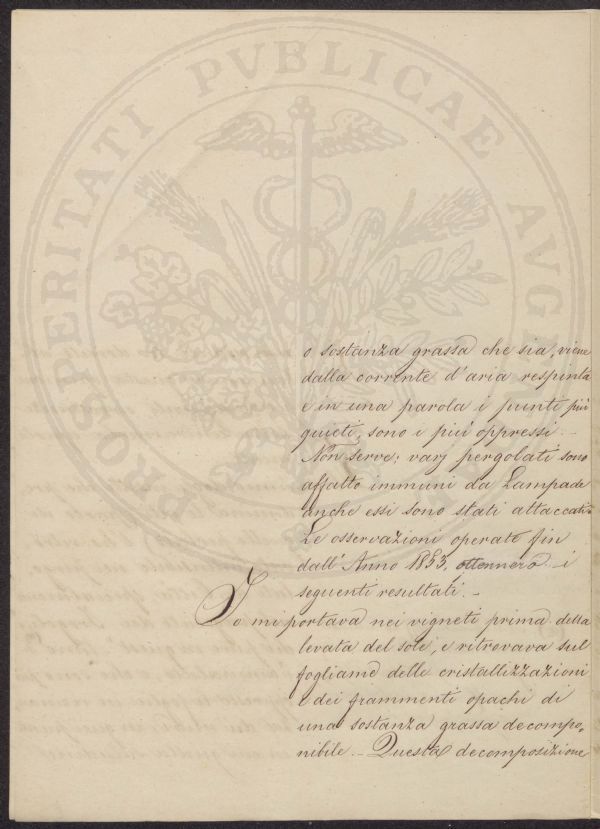 PROSPERITATI PVBLICAE AVGE
o sostanza grassa che sia, viene
dalla corrente d'aria respinta
e in una parola i punti più
quieti, sono i più oppressi. _
Non serve; varj pergolati sono
affatto immuni da Lampade
anche essi sono stati attaccati.
Le osservazioni operate fin
dall' Anno 1853, ottennero i
seguenti resultati. _
Io mi portava nei vigneti prima della
levata del sole, e ritrovava sul
fogliame delle cristallizzazioni
e dei frammenti opachi di
una sostanza grassa decompo,
nibile. _ Questa decomposizione